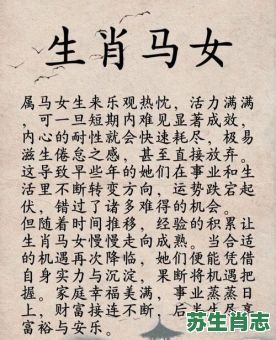 生肖马女
属马女生来乐观热忱，活力满满
，可一旦短期内难见显著成效，
内心的耐性就会快速耗尽，极易
滋生倦怠之感，甚至直接放弃。
这导致早些年的她们在事业和生
活里不断转变方向，运势跌宕起
伏，错过了诸多难得的机会。
但随着时间推移，经验的积累让
生肖马女慢慢走向成熟。当合适
的机遇再次降临，她们便能凭借
自身实力与沉淀，果断将机遇把
握。家庭幸福美满，事业蒸蒸日
上，财富接连不断，后半生尽享
富裕与安乐。
苏生肖志